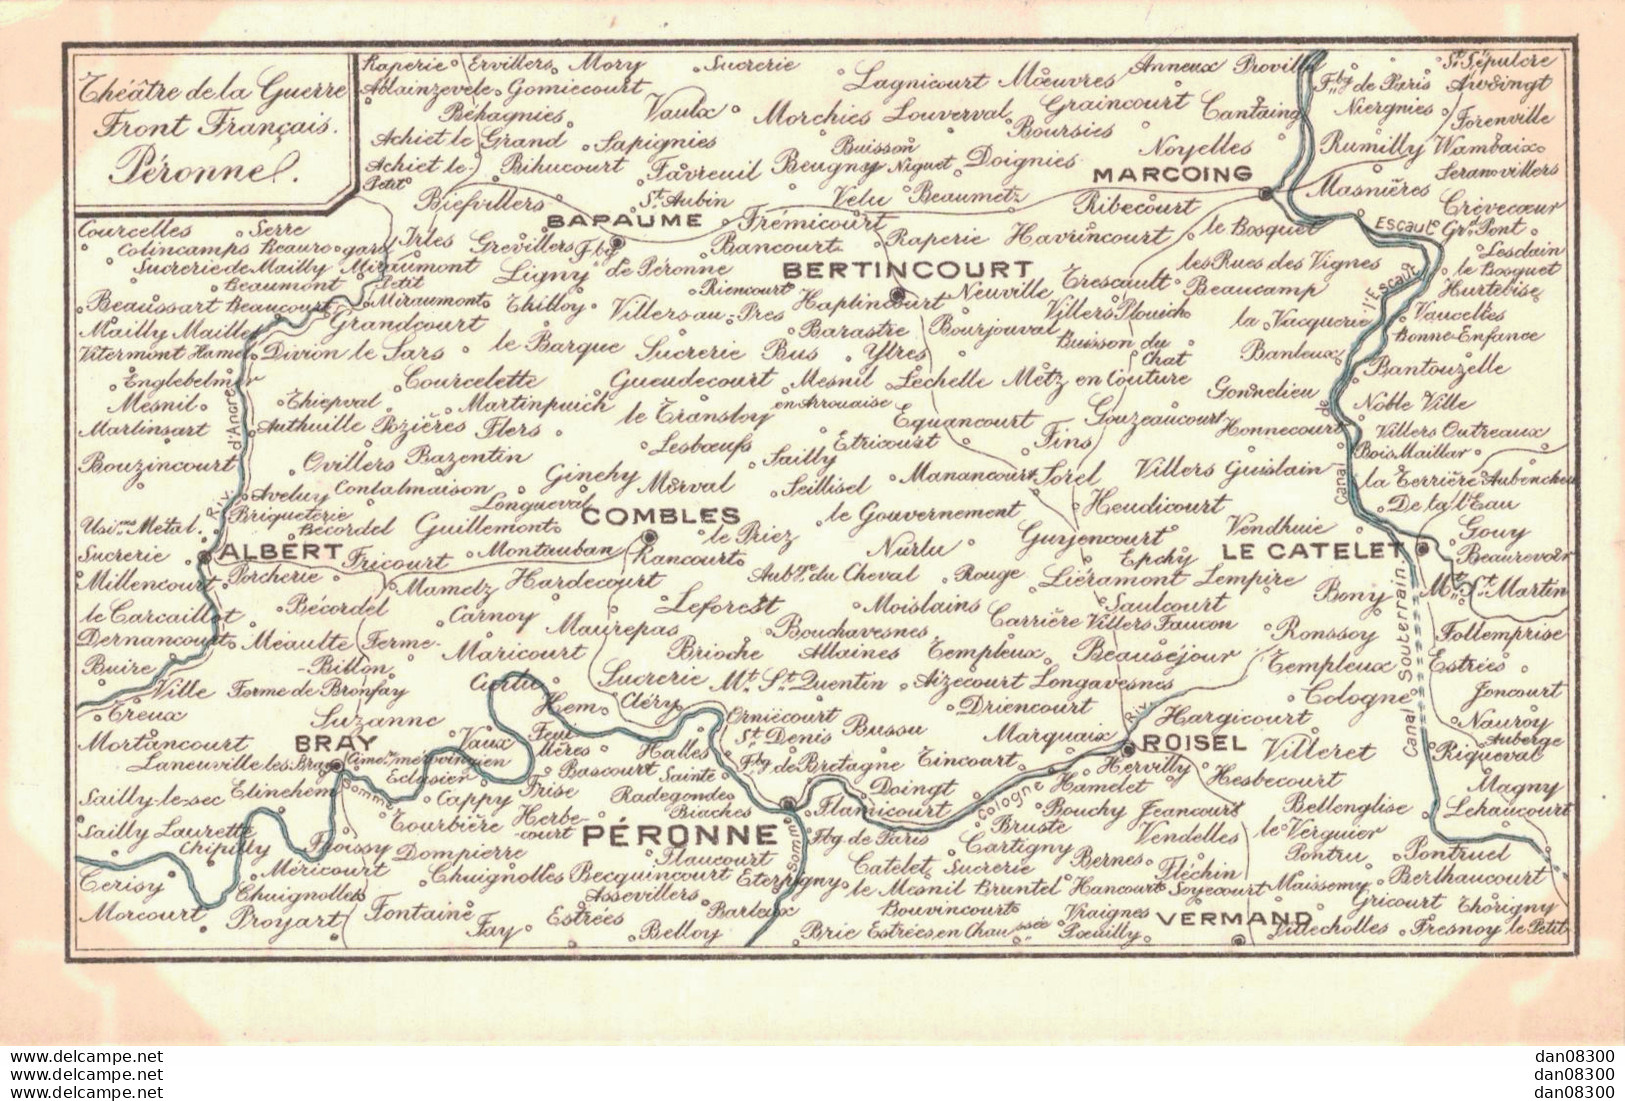 Théâtre de la Guerre
Front Français.
Péronne.
Raperie Ervillers Mory Sucrerie Anneux Proville St Sépulcre
Ablainzevele Gomiecourt Lagnicourt Moeuvres Fbg de Paris Awoingt
Béhagnies Vaulx Morchies Louverval Graincourt Cantaing Niergnies Forenville
Achiet le Grand Sapignies Buisson Boursies Noyelles Rumilly Wambaix
Achiet le Petit Bihucourt Favreuil Beugny Niguet Doignies MARCOING Masnières Seranvillers
Biefvillers St Aubin Velu Beaumetz Ribecourt Crèvecœur
BAPAUME Frémicourt
Courcelles Serre Irles Grevillers Fbg de Péronne Bancourt Raperie Havrincourt le Bosquet Escaut Gr. Pont
Colincamps Beauregard Lesdain
Sucrerie de Mailly Miraumont Ligny BERTINCOURT Trescault les Rues des Vignes le Bosquet
Beaumont Petit Miraumont Riencourt Haplincourt Neuville Beaucamp Hurtebise
Beaussart Beaucourt Thilloy Villers-au-Pres Villers Plouich l'Escaut Vaucelles
Mailly Mailley Grandcourt Barastre Bourjouval la Vacquerie Bonne-Enfance
Vitermont Hamel Divion le Sars le Barque Sucrerie Bus Ytres Buisson du Chat Banteux Bantouzelle
Englebelmer Courcelette Gueudecourt Mesnil en Arrouaise Lechelle Metz en Couture Gonnelieu
Mesnil Thiepval Martinpuich le Transloy Equancourt Gouzeaucourt Noble Ville
Marlinsart Authuille Pozières Flers Etricourt Fins Honnecourt Villers Outreaux
Riv. d'Ancre Lesbœufs Canal de
Bouzincourt Ovillers Bazentin Ginchy Sailly Manancourt Sorel Villers Guislain Bois Maillar
Aveluy Contalmaison Morval Seillisel la Terrière Aubencheu
Briqueterie Longueval COMBLES le Gouvernement Heudicourt De la l'Eau
Métal Bécordel Guillemont le Priez Vendhuie Gouy
Sucrerie ALBERT Fricourt Montauban Rancourt Nurlu Gurjencourt Epchy LE CATELET Beaurevoir
Millencourt Porcherie Mametz Hardecourt du Cheval Rouge Liéramont Lempire Bony Mt St Martin
le Carcaillot Bécordel Carnoy Leforest Moislains Saulcourt
Dernancourt Méaulte Ferme-Billon Maurepas Bouchavesnes Carrière Villers Faucon Ronssoy Canal Souterrain. Follemprise
Buire Maricourt Brioche Allaines Templeux Beauséjour Templeux Estrées
Ville Forme de Bronfay Curlu Sucrerie Mt St Quentin Aizecourt Longavesnes Cologne Joncourt
Treux Suzanne Hem Cléry Driencourt Riv. Hargicourt Nauroy
Mortancourt BRAY Vaux Feuilléres Halles St Denis Bussu Marquaix ROISEL Villeret Auberge
Laneuville les Bray Cimere mérovingien Bascourt Sainte Radegonde Fbg de Bretagne Tincourt Hervilly Riqueval
Eclusier Hesbecourt
Sailly-le-sec Etinehem Somme Cappy Frise Biaches Doingt Cologne Hamelet Magny
Sailly Laurette Tourbière Herbecourt PÉRONNE Flamicourt Bouchy Jeancourt Bellenglise Lehaucourt
Chipilly Froissy Dompierre Flaucourt Somme Fbg de Paris Bruste Vendelles le Verguier
Cerisy Méricourt Chuignolles Becquincourt Eterpigny Catelet Sucrerie Cartigny Bernes Fléchin Pontru Pontruel
Chuignolles Assevillers le Mesnil Bruntel Hancourt Soyecourt Maissemy Berthaucourt
Morcourt Proyart Fontaine Estrées Barleux Bouvincourt Vraignes VERMAND Gricourt Thorigny
Fay Belloy Brie Estrées en Chaussée Pœuilly Villecholles Fresnoy le Petit
dan08300
dan08300
dan08300
dan08300
dan08300
dan08300